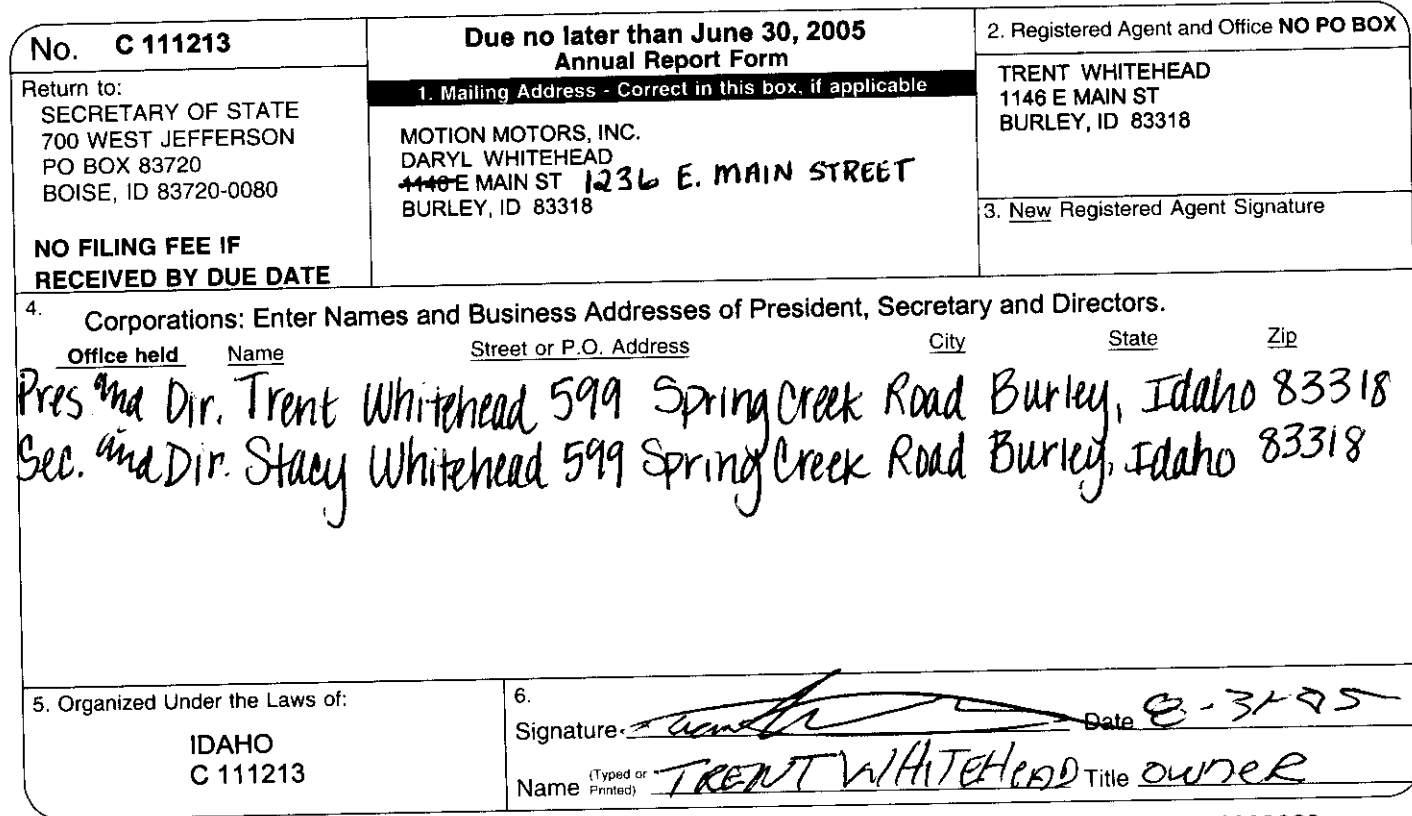 No. C 111213
Return to:
SECRETARY OF STATE
700 WEST JEFFERSON
PO BOX 83720
BOISE, ID 83720-0080
NO FILING FEE IF
RECEIVED BY DUE DATE
Due no later than June 30, 2005
Annual Report Form
1. Mailing Address - Correct in this box, if applicable
MOTION MOTORS, INC.
DARYL WHITEHEAD
1146 E MAIN ST 1236 E. MAIN STREET
BURLEY, ID 83318
2. Registered Agent and Office NO PO BOX
TRENT WHITEHEAD
1146 E MAIN ST
BURLEY, ID 83318
3. New Registered Agent Signature
4. Corporations: Enter Names and Business Addresses of President, Secretary and Directors.
Office held Name Street or P.O. Address City State Zip
Pres and Dir. Trent Whitehead 599 Spring Creek Road Burley, Idaho 83318
Sec. and Dir. Stacy Whitehead 599 Spring Creek Road Burley, Idaho 83318
5. Organized Under the Laws of:
IDAHO
C 111213
6.
Signature Date 8-31-05
Name (Typed or Printed) TRENT WHITEHEAD Title OWNER